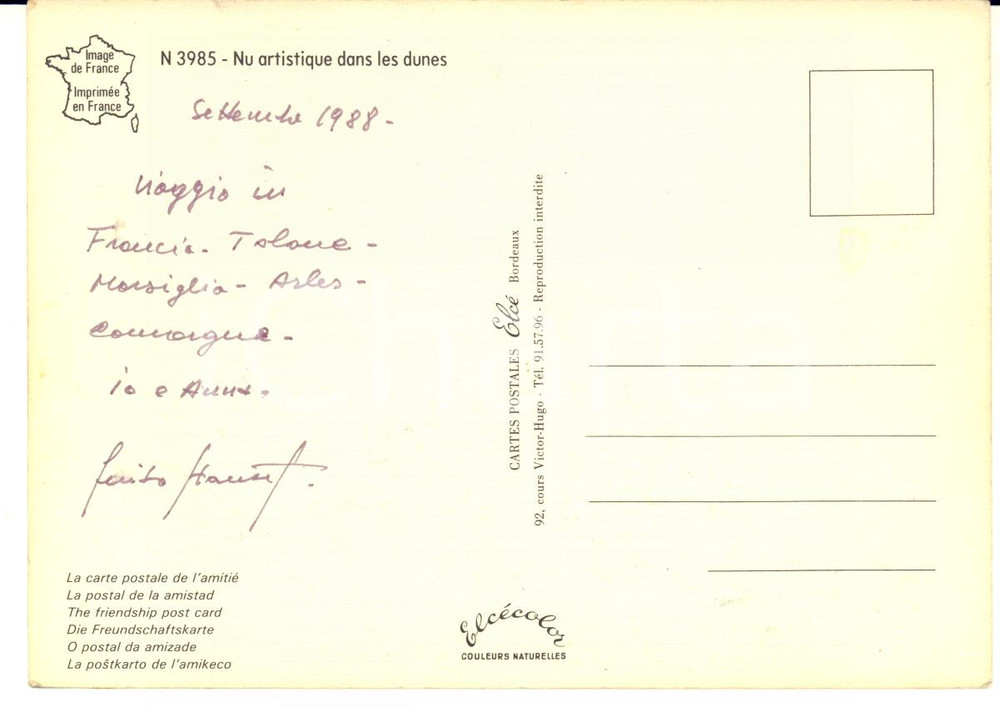 Image
de France
Imprimée
en France
N 3985 - Nu artistique dans les dunes
Settembre 1988 -
Viaggio in
Francia - Tolone -
Marsiglia - Arles -
Camargue -
io e Anna.
Guido
CARTES POSTALES Elcé Bordeaux
92, cours Victor-Hugo - Tél. 91.57.96 - Reproduction interdite
La carte postale de l'amitié
La postal de la amistad
The friendship post card
Die Freundschaftskarte
O postal da amizade
La poŝtkarto de l'amikeco
Elcécolor
COULEURS NATURELLES